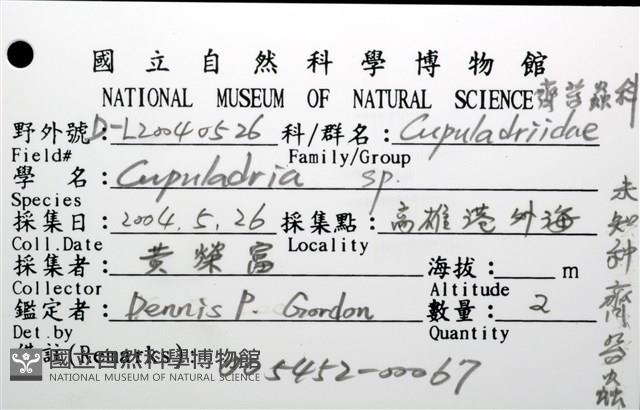 國立自然科學博物館
NATIONAL MUSEUM OF NATURAL SCIENCE 齊苔蟲科
野外號：D-L20040526 科/群名：Cupuladriidae
Field# Family/Group
學 名：Cupuladria sp.
Species
採集日：2004.5.26 採集點：高雄港外海
Coll.Date Locality
採集者：黃榮富 海拔：_____ m
Collector Altitude
鑑定者：Dennis P. Gordon 數量：2
Det.by Quantity
備註(Remarks)： 005452-00067
未知種齊苔蟲
國立自然科學博物館
NATIONAL MUSEUM OF NATURAL SCIENCE